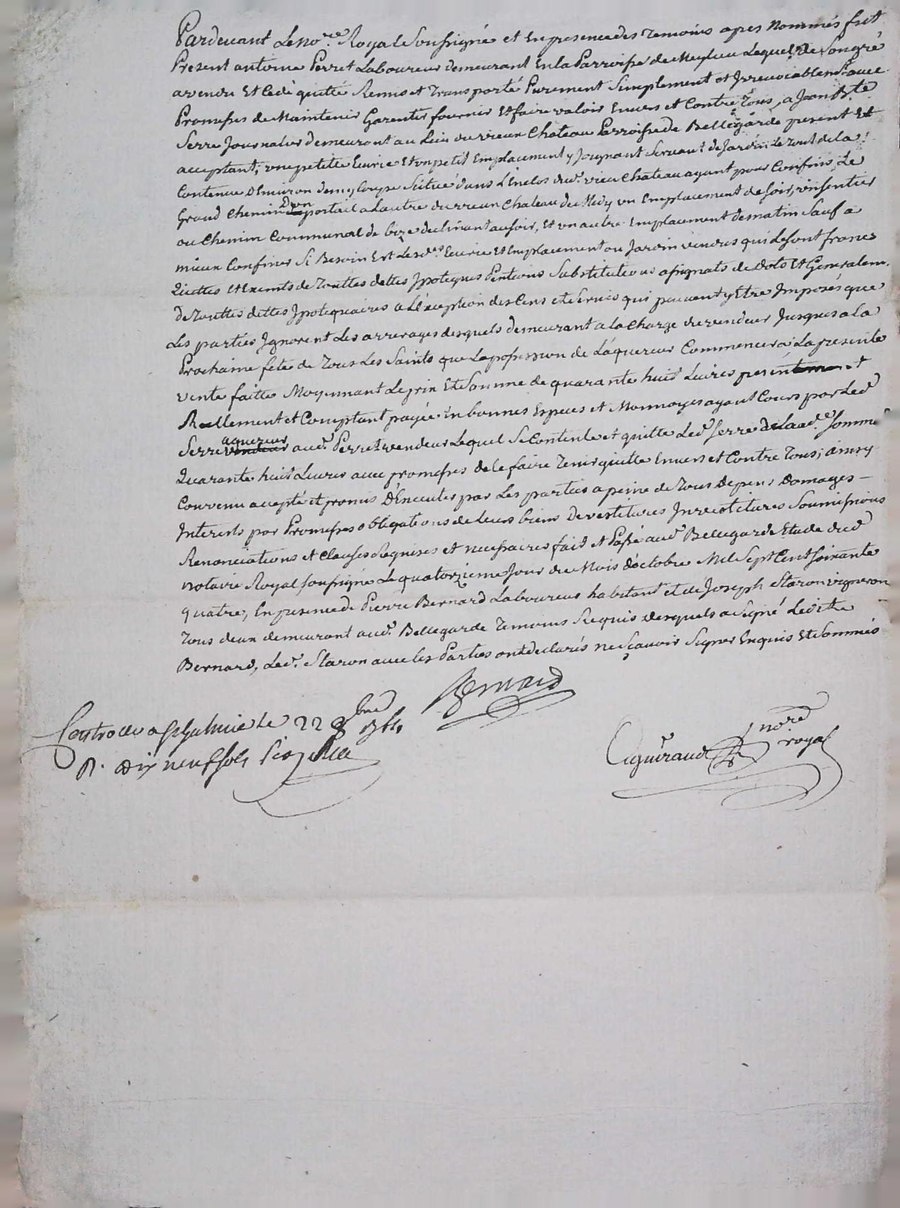 Pardevant Le No.re Royal Soussigné et En presence des Temoins apres Nommés fut
Present antoine Perret Laboureur demeurant En la Parroisse de Meylieu Lequel de Son gré
a vendu Et Cedé quitte Remis et Transporté Purement Simplement et Irrevocablem.t avec
Promesses de Maintenir Garentir fournir Et faire valoir Envers et Contre Tous, a Jean B.te
Serre Journalier demeurant au Lieu du vieux Chateau Parroisse de Bellegarde present Et
acceptant, une petite Ecurie Et un petit Emplacement y Joignant Servant de Jardin Le Tout de la
Contenue D'Environ demy Coupe Scitué dans L'Enclos dud. vieux Chateau ayant pour Confins Le
Grand Chemin D'un portail a L'autre du vieux Chateau du Midy un Emplacement de Soir, un Sentier
ou Chemin Communal de bize declinant au Soir, Et un autre Emplacement de matin Sauf a
mieux Confiner Si Besoin Est Lesd. Ecurie Et Emplacement ou Jardin vendus qui Se font francs
Quittes et Exemts de Touttes dettes Ypoteques Pentions Substitutions assignats de dots Et Generalem.t
de Touttes dettes Ypotequaires a L'Exeption des Cens et Servis qui peuvent y Etre Imposés que
Les parties Ignorent Les arrerages desquels demeurant a la Charge du vendeur Jusques a la
Prochaine fete de Tous Les Saints que La possession de L'aquereur Commencera La presente
vente faitte Moyennant Le prix Et Somme de quarante huit Livres et
Réellement et Comptant payée in bonnes Especes et Monnoyes ayant Cours par Led.
Serre aquereur aud. Perret vendeur Lequel Se Contente et quitte Led. Serre de La ad. Somme
Quarante huit Livres avec promesses de Le faire Tenir quitte Envers et Contre Tous; ainsy
Convenu accepté et promis D'Executer par Les parties a peine de Tous Depens Domages
Interests par Promesses obligations de Leurs biens Devestitures Investitures Soumissions
Renonciations et Clauses Requises et necessaires fait et Passé aud. Bellegarde Etude dud.
notaire Royal soussigné Le quatorzieme Jour du Mois d'octobre Mil Sept Cent Soixante
quatre, En presence de Pierre Bernard Laboureur habitant et de Joseph Staron vigneron
Tous deux demeurant aud. Bellegarde Temoins Requis desquels a Signé Ledit
Bernard, Led. Staron avec les Parties ont declarés ne Sçavoir Signer Enquis Et Sommés
Bernard
Controlé a St Galmier le 22 8bre 1764
R. Dix neuf sols
no.re
royal